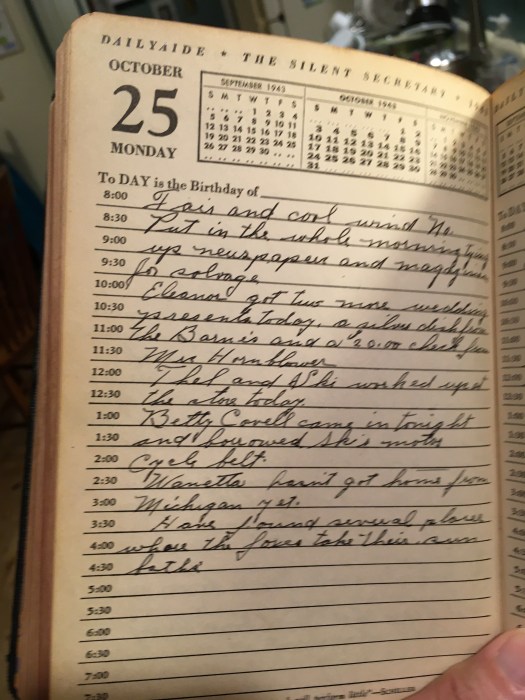 DAILYAIDE ★ THE SILENT SECRETARY ★
OCTOBER
25
MONDAY
SEPTEMBER 1943
S M T W T F S
.. .. .. 1 2 3 4
5 6 7 8 9 10 11
12 13 14 15 16 17 18
19 20 21 22 23 24 25
26 27 28 29 30 .. ..
OCTOBER 1943
S M T W T F S
1 2
3 4 5 6 7 8 9
10 11 12 13 14 15 16
17 18 19 20 21 22 23
24 25 26 27 28 29 30
31
To DAY is the Birthday of
8:00 Fair and cool wind No.
8:30 Put in the whole morning tying
9:00 up newspapers and magazines
9:30 for salvage
10:00 Eleanor got two more wedding
10:30 presents today, a silver dish from
11:00 the Barnes and a 20.00 check from
11:30 Mrs Hornblower
12:00 Thel and Ski worked up at
12:30 the store today
1:00 Betty Covell came in tonight
1:30 and borrowed Ski's motor
2:00 Cycle belt.
2:30 Wanetta hasn't got home from
3:00 Michigan yet.
3:30 Have found several places
4:00 where the foxes take their sun
4:30 baths
5:00
5:30
6:00
6:30
7:00
7:30